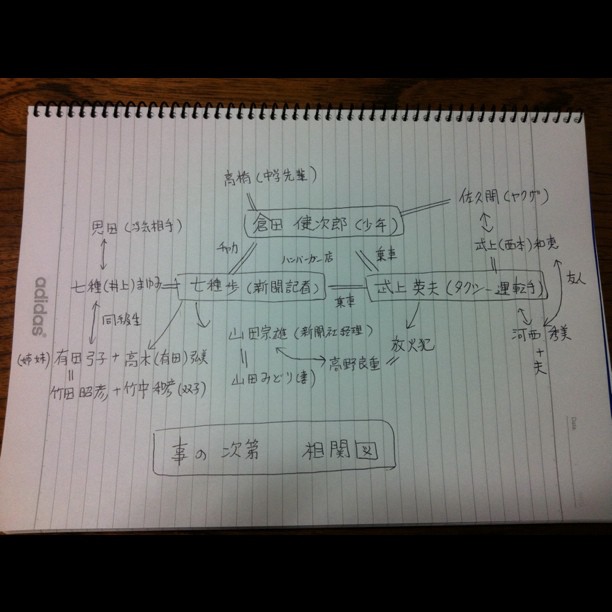 高橋(中学先輩)
佐久間(ヤクザ)
倉田 健次郎(少年)
恩田(浮気相手)
武上(西本)和恵
チャカ
ハンバーガー店
乗車
七種(井上)まゆみ
七種 歩(新聞記者)
乗車
武上 英夫(タクシー運転手)
友人
同級生
河西 秀美
+
夫
山田宗雄(新聞社経理)
放火犯
(姉妹)有田弓子+高木(有田)弘美
高野良重
竹田昭彦+竹中和彦(双子)
山田みどり(妻)
事の次第 相関図
adidas
Date